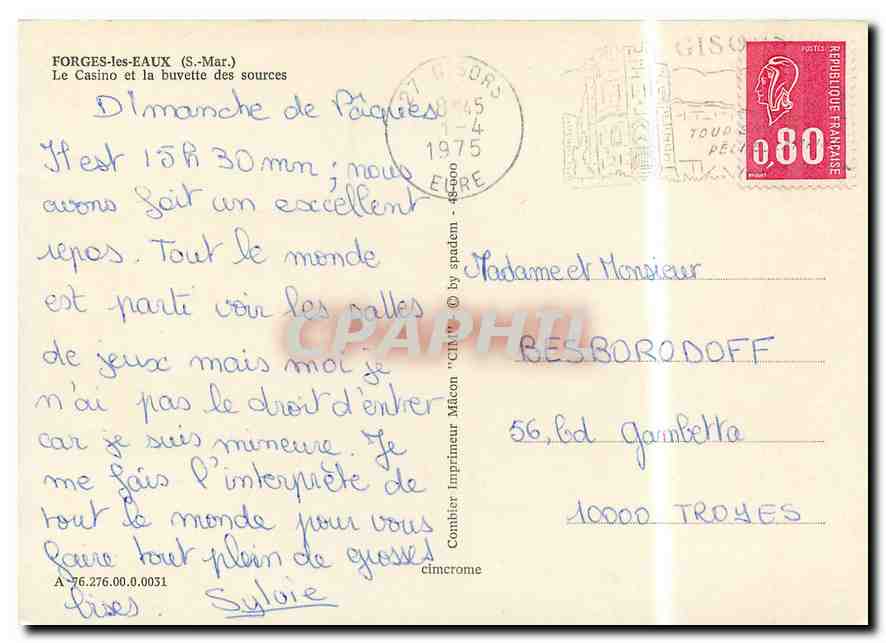 FORGES-les-EAUX (S.-Mar.)
Le Casino et la buvette des sources
Dimanche de Pâques
Il est 15h 30mn ; nous
avons fait un excellent
repas. Tout le monde
est parti voir les salles
de jeux mais moi je
n'ai pas le droit d'entrer
car je suis mineure. Je
me fais l'interprète de
tout le monde pour vous
faire tout plein de grosses
bises. Sylvie
A 76.276.00.0.0031
Combier Imprimeur Mâcon "CIM" - © by spadem - 48-000
cimcrome
27 GISORS
1-4
1975
EURE
POSTES
REPUBLIQUE FRANÇAISE
0,80
Madame et Monsieur
BESBORODOFF
56, bd Gambetta
10000 TROYES
CPAPHIL